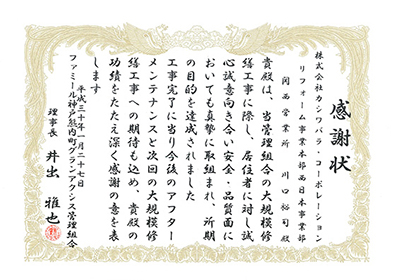 感謝状
株式会社カシワバラ・コーポレーション
リフォーム事業本部西日本事業部
関西営業所　川口裕司殿
貴殿は、当管理組合の大規模修
繕工事に際し、居住者に対し誠
心誠意向き合い安全・品質面に
おいても真摯に取組まれ、所期
の目的を達成されました
工事完了に当り今後のアフター
メンテナンスと次回の大規模修
繕工事への期待も込め、貴殿の
功績をたたえ深く感謝の意を表
します
平成三十年一月二十七日
ファミール神戸熊内町グランアクシス管理組合
理事長　井出　雅也